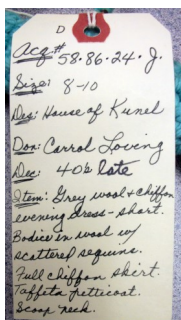 D
Acq.# 58.86.24.J.
Size: 8-10
Des: House of Kunel
Don: Carrol Loving
Dec: 40's late
Item: Grey wool + chiffon
evening dress - short.
Bodice in wool w/
scattered sequins.
Full chiffon skirt.
Taffeta petticoat.
Scoop neck.